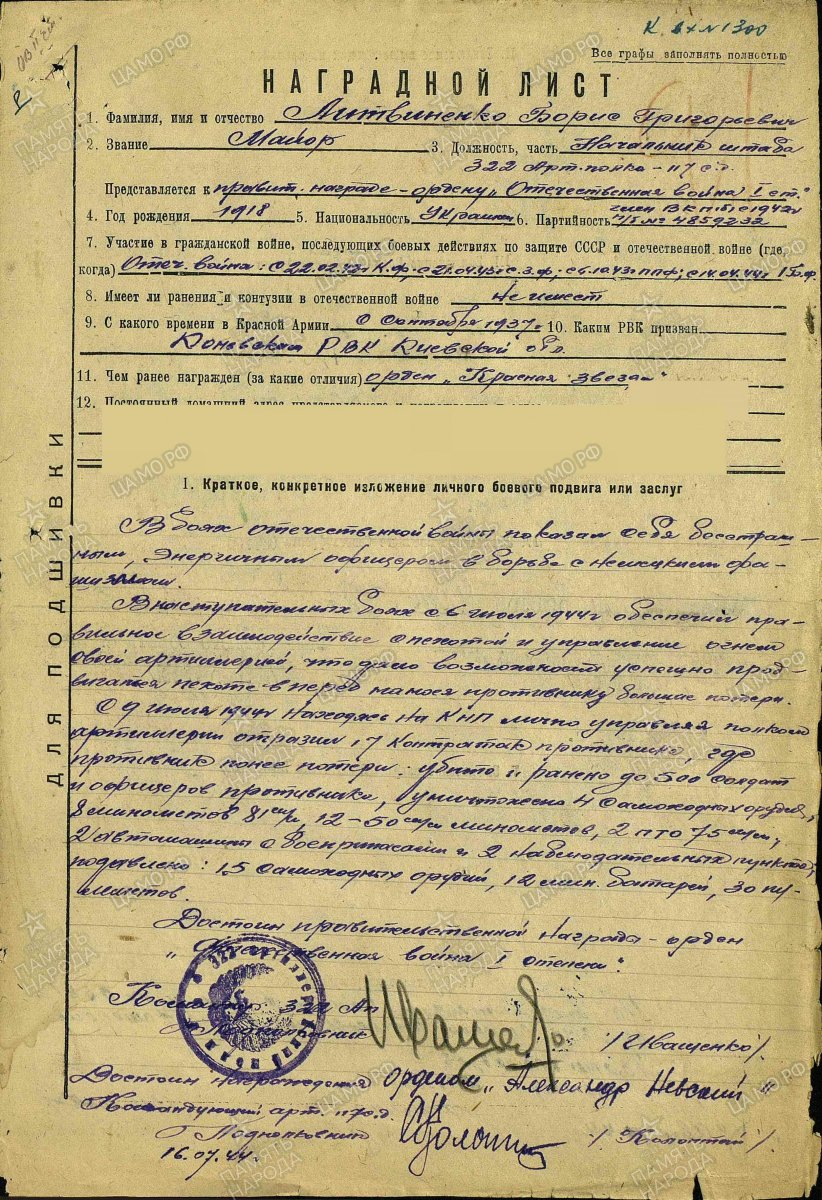 К. вх № 1300
Все графы заполнять полностью
НАГРАДНОЙ ЛИСТ
1. Фамилия, имя и отчество Литвиненко Борис Григорьевич
2. Звание Майор 3. Должность, часть Начальник штаба
322 Арт. полка - 117 с.д.
Представляется к правит. награде - ордену „Отечественная война I ст."
4. Год рождения 1918 5. Национальность Украинец 6. Партийность член ВКП(б) с 1942г
п/б № 4859232
7. Участие в гражданской войне, последующих боевых действиях по защите СССР и отечественной войне (где,
когда) Отеч. война: с 22.02.42г К.ф. с 21.04.43г С.З.ф; с 6.10.43г ППФ; с 14.04.44г I Б.ф.
8. Имеет ли ранения и контузии в отечественной войне Не имеет
9. С какого времени в Красной Армии с Октября 1937г 10. Каким РВК призван
РВК Киевской обл.
11. Чем ранее награжден (за какие отличия) орден „Красная звезда"
12. Постоянный домашний адрес представляемого к
1. Краткое, конкретное изложение личного боевого подвига или заслуг
В боях отечественной войны показал себя бесстраш-
ным, энергичным офицером в борьбе с немецким фа-
шизмом.
В наступательных боях с 6 июля 1944г обеспечил пра-
вильное взаимодействие с пехотой и управление огнем
своей артиллерией, что дало возможность успешно прод-
вигаться пехоте вперед нанося противнику большие потери.
С 9 июля 1944г находясь на КНП лично управляя полком
артиллерии отразил 17 контратак противника, где
противник понес потери: убито и ранено до 500 солдат
и офицеров противника, уничтожено 4 самоходных орудий,
8 минометов 81 м/м, 12-50 м/м минометов, 2 пто 75 м/м,
2 автомашины с боеприпасами и 2 наблюдательных пункта,
подавлено: 15 самоходных орудий, 12 мин. батарей, 30 пу-
леметов.
Достоин правительственной награды - орден
„Отечественная война I степени".
Командир 322 Ап
Подполковник /Иващенко/.
Достоин награждения Орденом „Александр Невский"
Командующий арт. 117 с.д.
Подполковник /Колонтай/.
16.07.44г.
ДЛЯ ПОДШИВКИ
ПАМЯТЬ НАРОДА
ЦАМО РФ